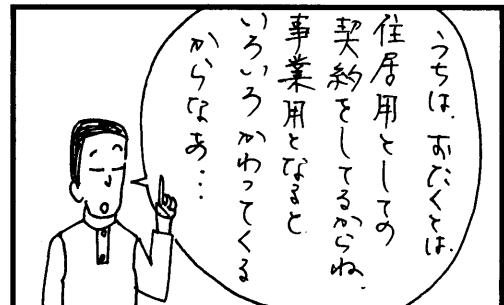 うちは、おたくとは、
住居用としての
契約をしてるからね、
事業用となると
いろいろかわってくる
からなあ…